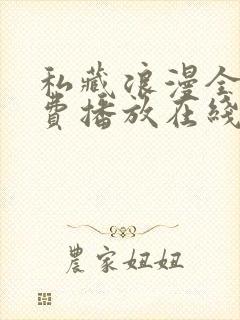 私藏浪漫全
費播放在綫
農家妞妞